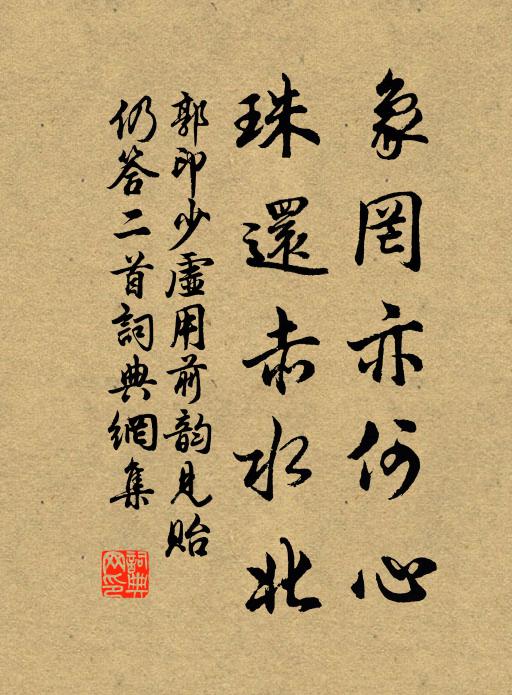 象罔亦何心
珠還赤水北
郭印少虛用前韵見貽
仍答二首詞典網集
詞典網印